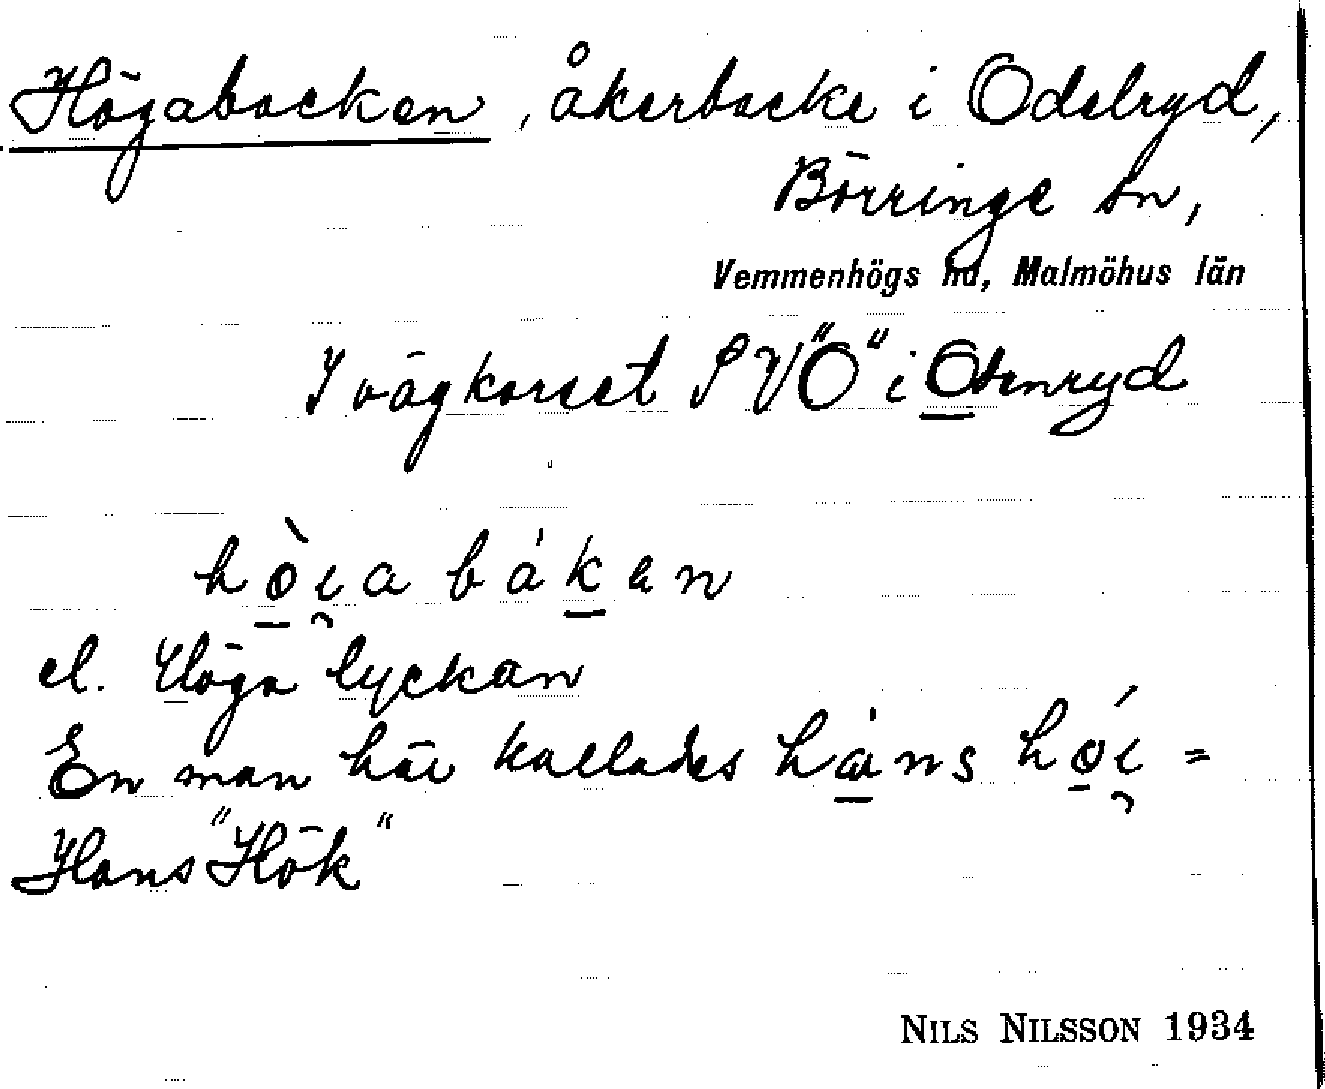 Högabacken, åkerbacke i Odelryd,
Börringe sn,
Vemmenhögs hd, Malmöhus län
I vägkorset SV "O" i
hò̱i̯a bák̠en
el. Höga lyckan
En man här kallades há̱ns hǿ̱i̯ =
Hans "Hök"
NILS NILSSON 1934